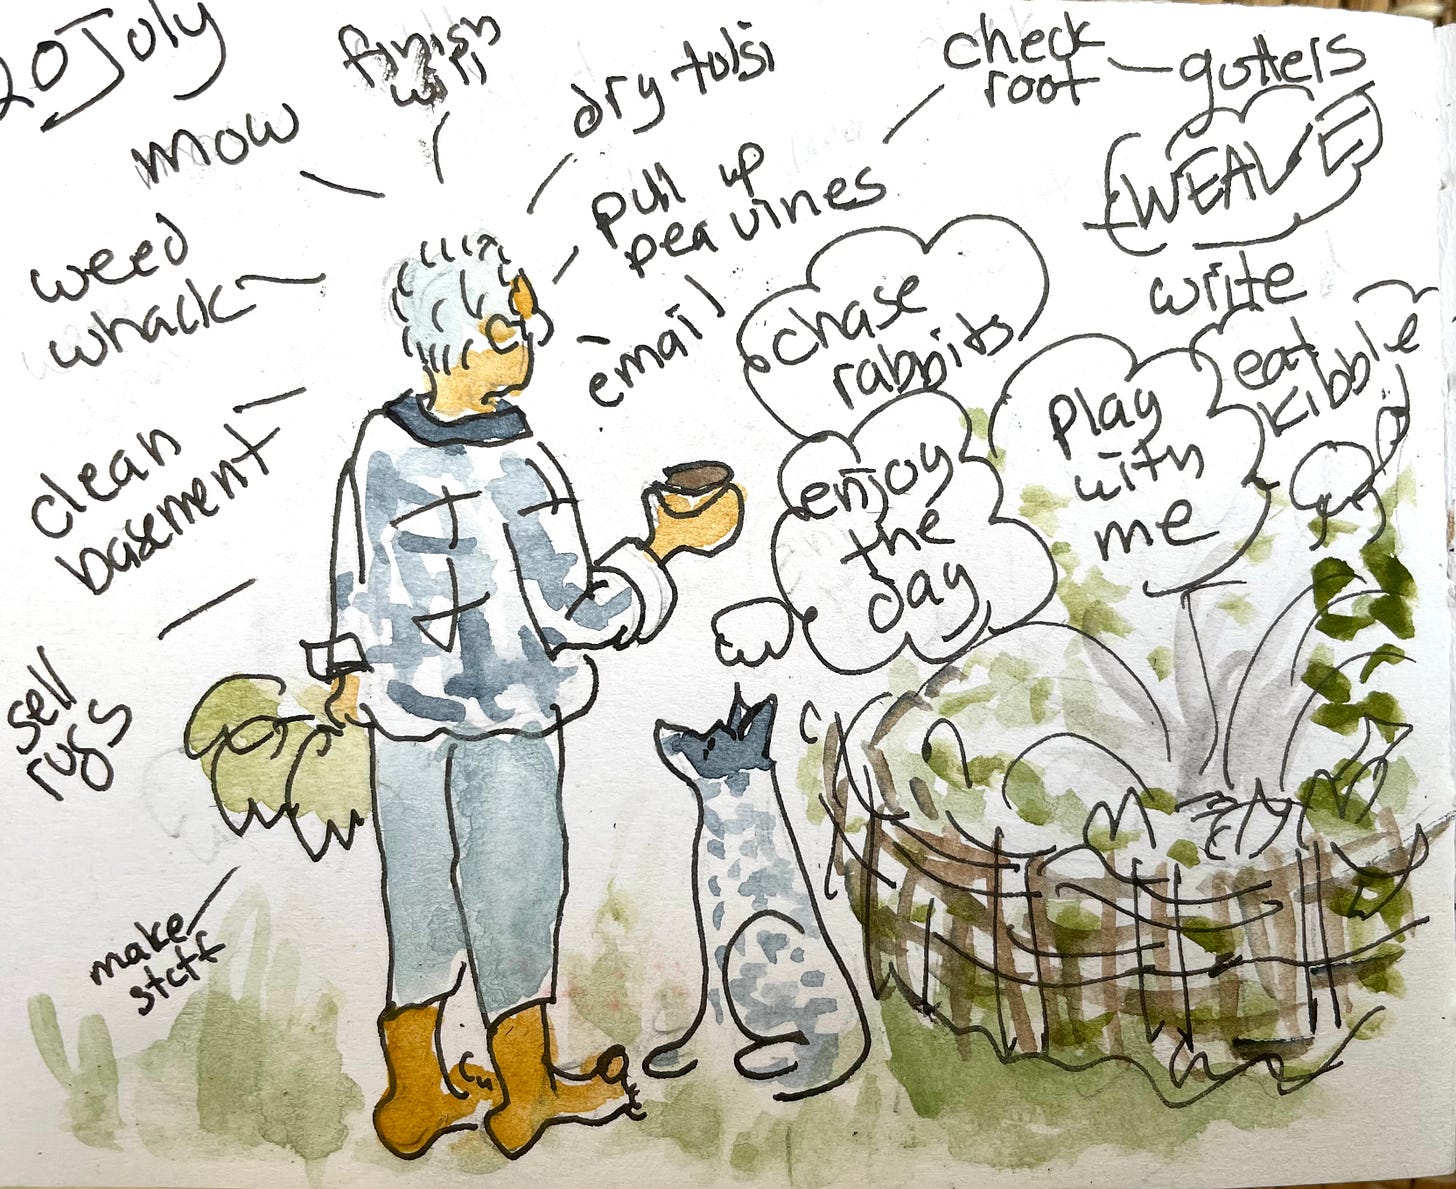 20 July
finish
will
mow
dry tulsi
check
roof
gutters
WEAVE
pull up
pea vines
weed
whack
email
write
chase
rabbits
eat
kibble
play
with
me
enjoy
the
day
clean
basement
sell
rugs
make
stuff